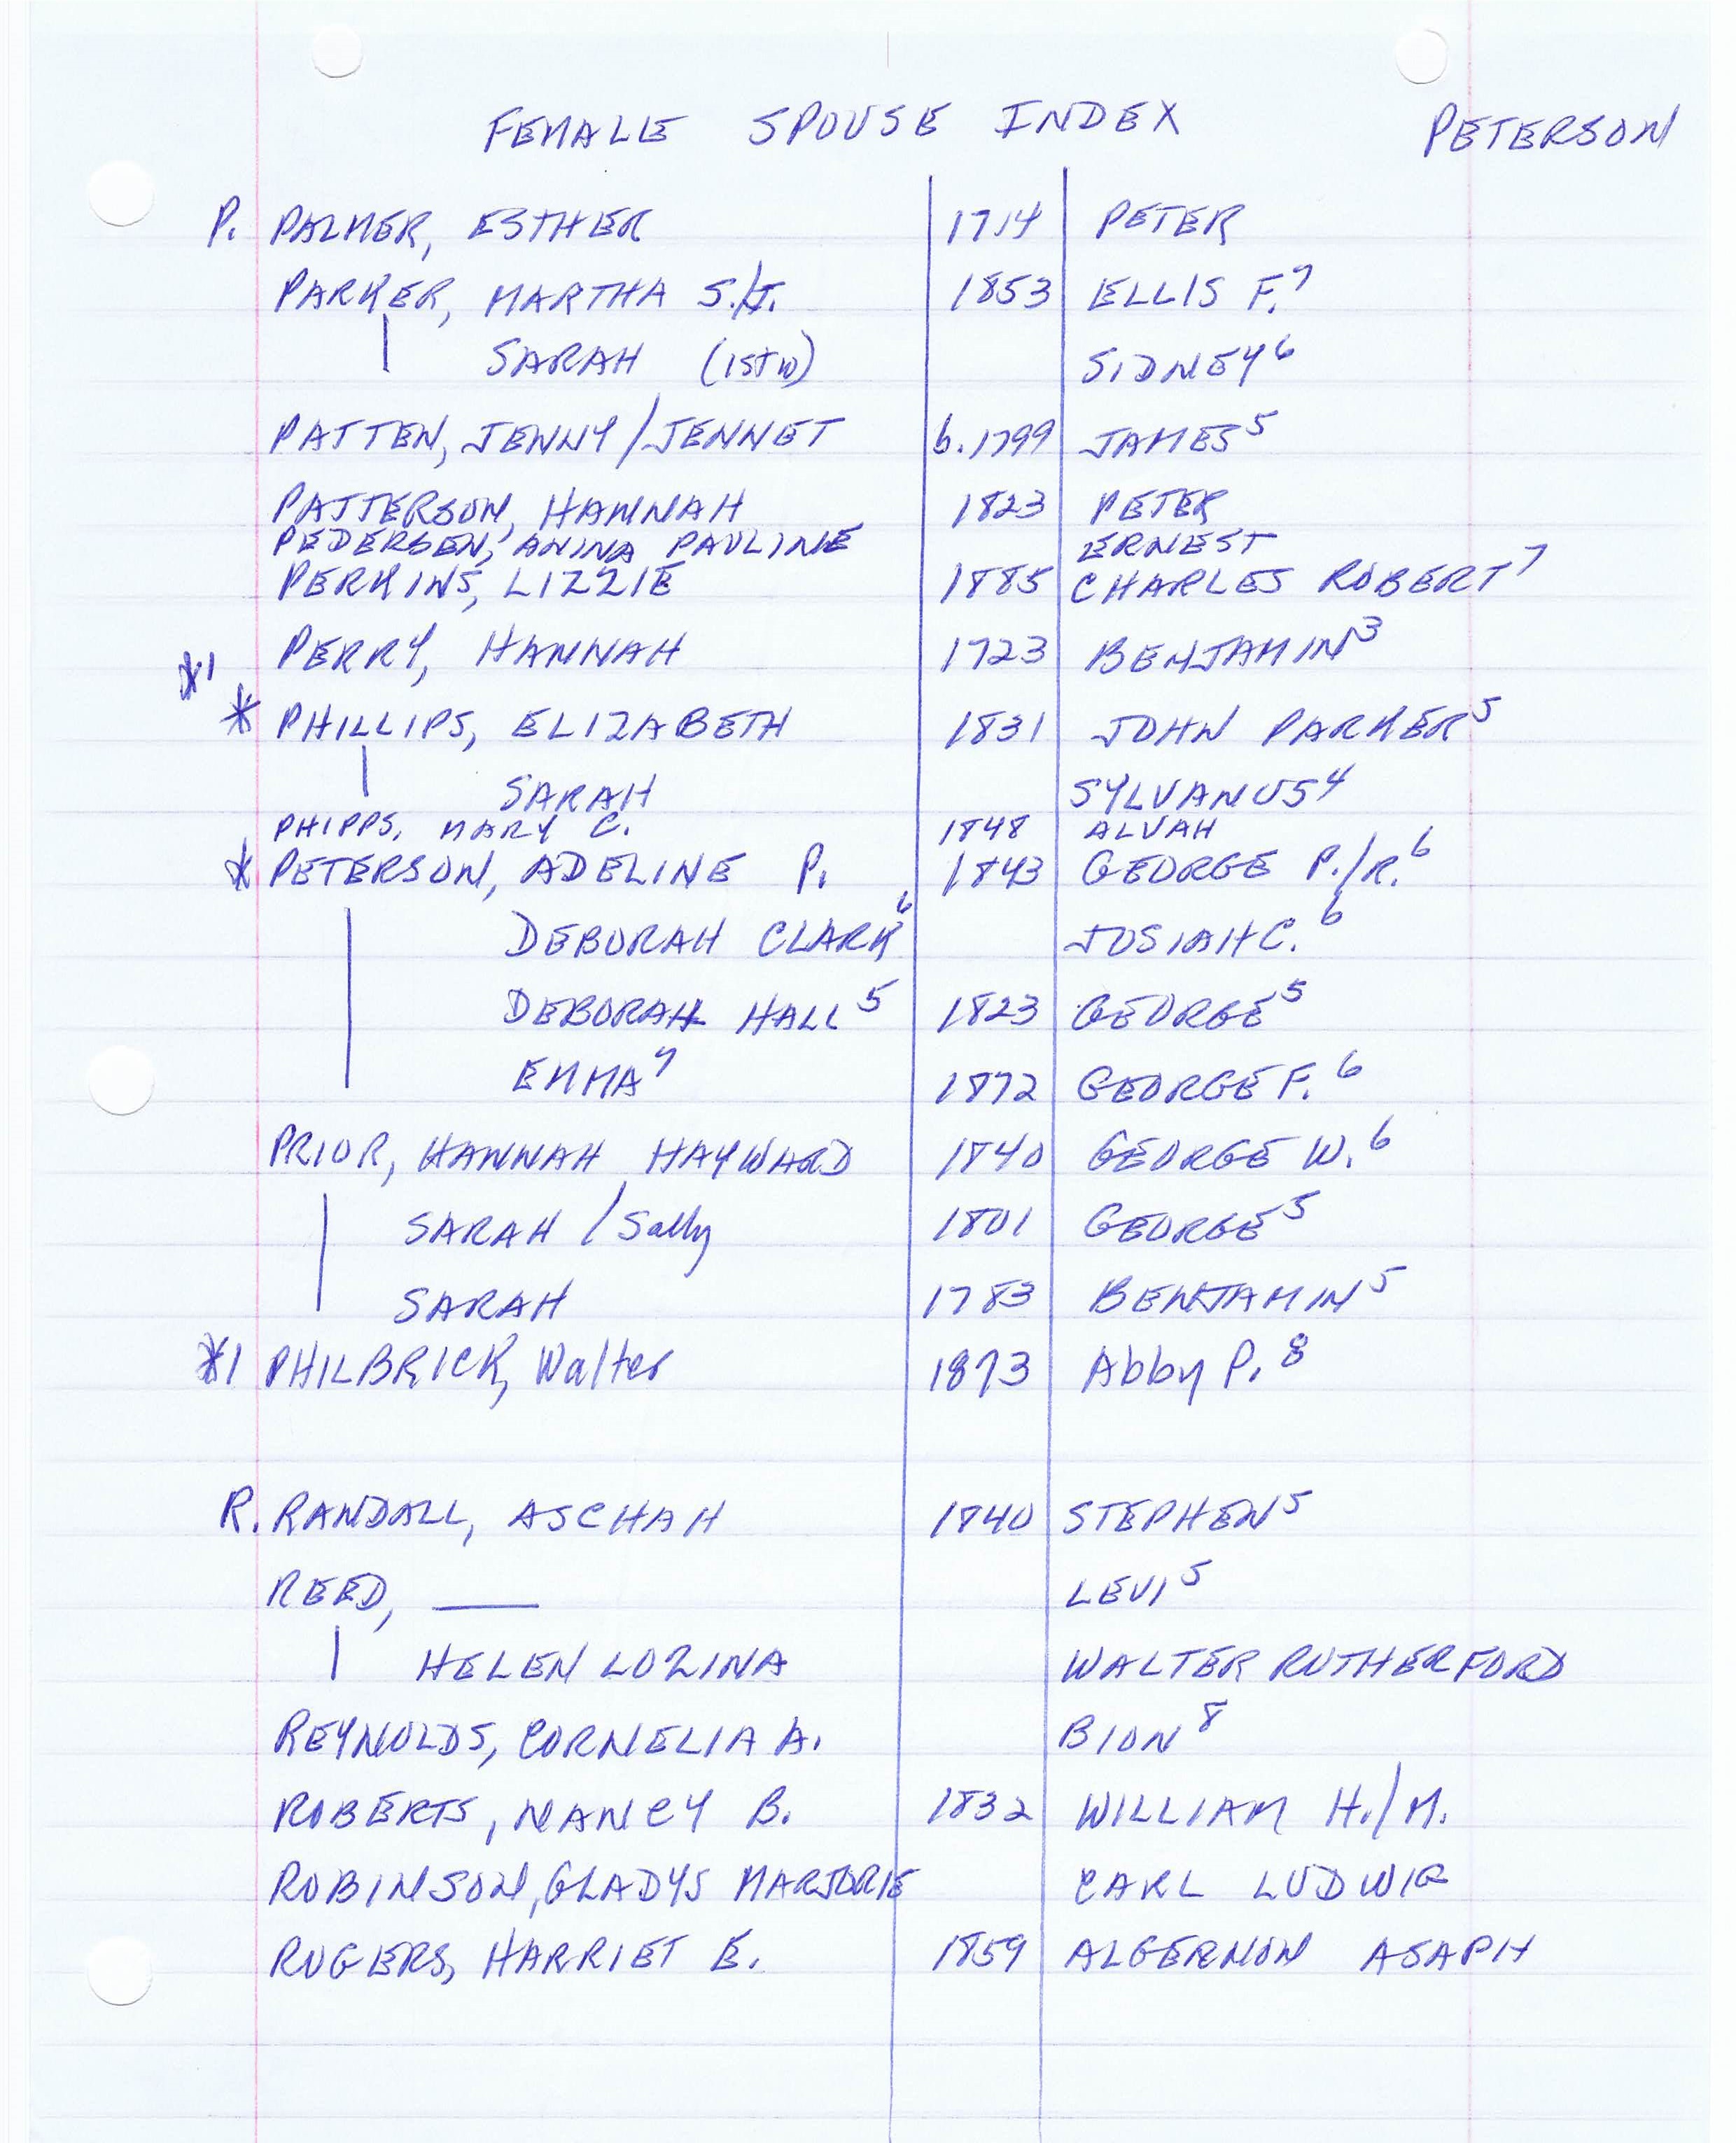 FEMALE SPOUSE INDEX PETERSON
P. PALMER, ESTHER 1714 PETER
PARKER, MARTHA S./J. 1853 ELLIS F.7
SARAH (1STW) SIDNEY6
PATTEN, JENNY/JENNET b.1799 JAMES5
PATTERSON, HANNAH 1823 PETER
PEDERSEN, ANINA PAULINE ERNEST
PERKINS, LIZZIE 1885 CHARLES ROBERT7
PERRY, HANNAH 1723 BENJAMIN3
*1
* PHILLIPS, ELIZABETH 1831 JOHN PARKER5
SARAH SYLVANUS4
PHIPPS, MARY C. 1848 ALVAH
* PETERSON, ADELINE P. 1843 GEORGE P./R.6
DEBORAH CLARK6 JOSIAH C.6
DEBORAH HALL5 1823 GEORGE5
EMMA7 1872 GEORGE F.6
PRIOR, HANNAH HAYWARD 1840 GEORGE W.6
SARAH / Sally 1801 GEORGE5
SARAH 1783 BENJAMIN5
*1 PHILBRICK, Walter 1873 Abby P.8
R. RANDALL, ASCHAH 1840 STEPHEN5
REED, ____ LEVI5
HELEN LOZINA WALTER RUTHERFORD
REYNOLDS, CORNELIA A. BION8
ROBERTS, NANCY B. 1832 WILLIAM H./M.
ROBINSON, GLADYS MARJORIE CARL LUDWIG
ROGERS, HARRIET E. 1859 ALGERNON ASAPH